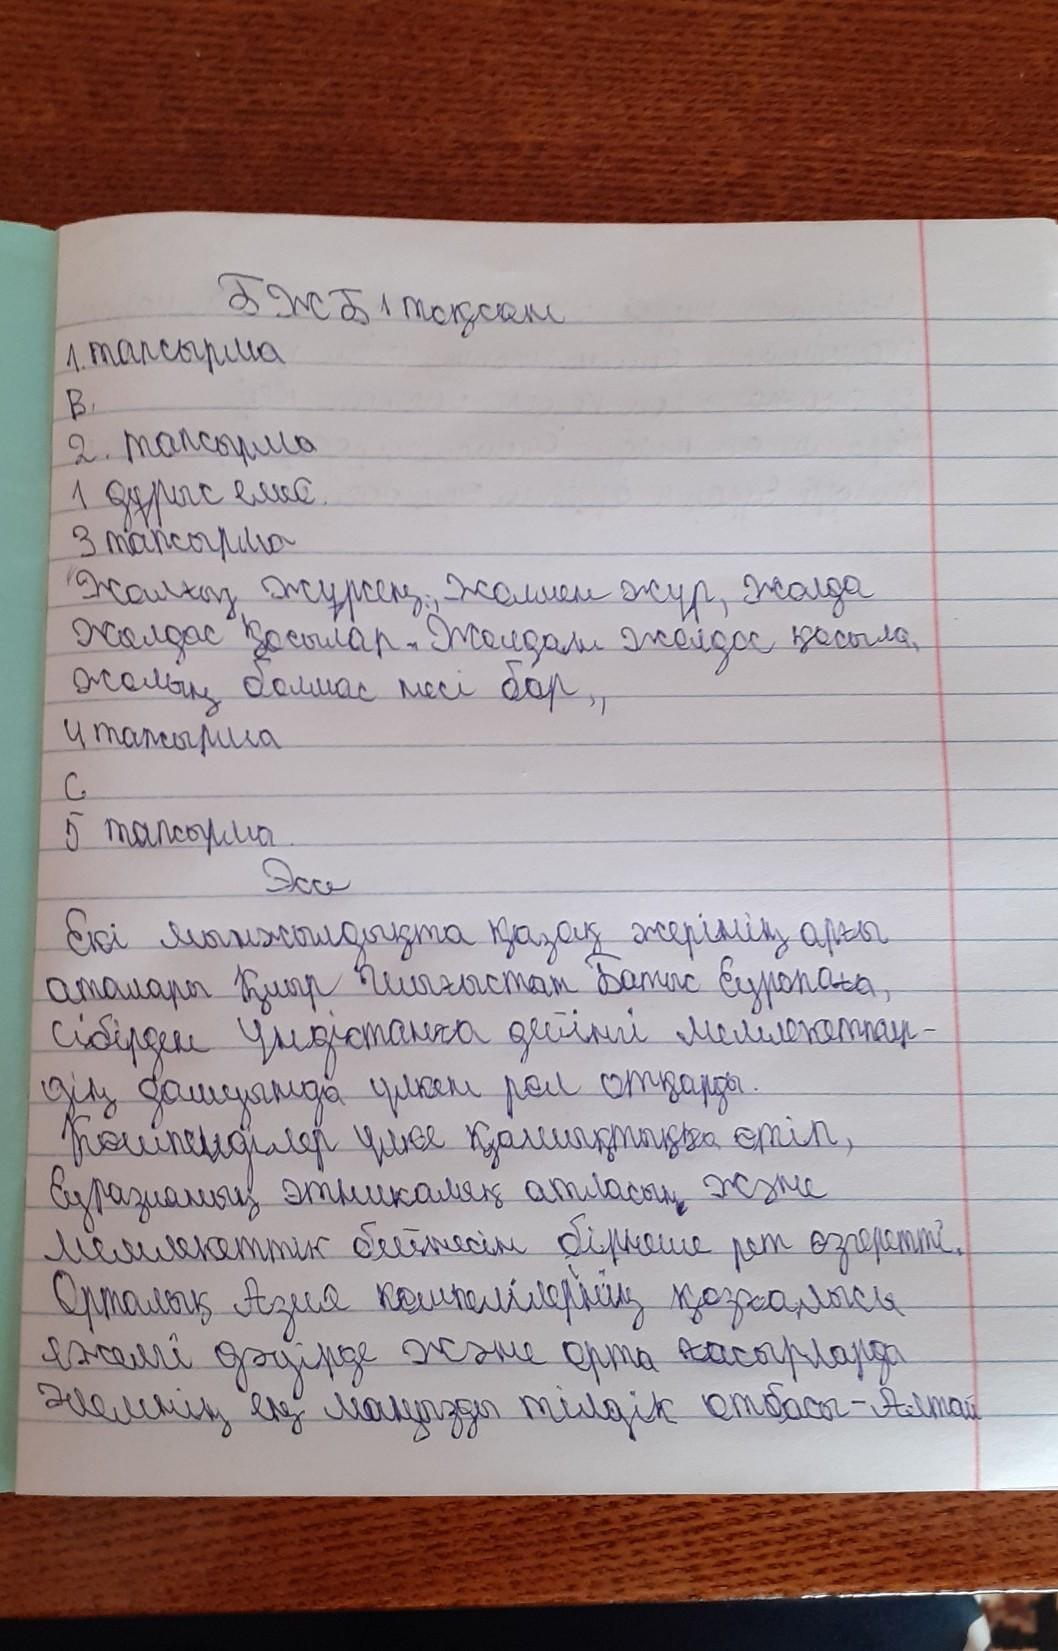 БЖБ 1 тоқсан
1. тапсырма
В.
2. тапсырма
1 дұрыс емес.
3 тапсырма
"Жалғыз жүрсең, жолмен жүр, жолда
жолдас қосылар. Жолдан жолдас қосыла,
жолың болмас несі бар,,
4 тапсырма
С
5 тапсырма.
Эссе
Екі мыңжылдықта қазақ жерінің арғы
аталары Қиыр Шығыстан Батыс Еуропаға,
Сібірден Үндістанға дейінгі мемлекеттер-
дің дамуында үлкен рол отқарды.
Көшпенділер үлке қашықтыққа өтіп,
Еуразияның этникалық атласын және
мемлекеттік бейнесін бірнеше рет өзгеретті.
Орталық Азия көшпелілерінің қозғалысы
ежелгі дәуірде және орта ғасырларда
әлемнің ең маңызды тілдік отбасы-Алтай